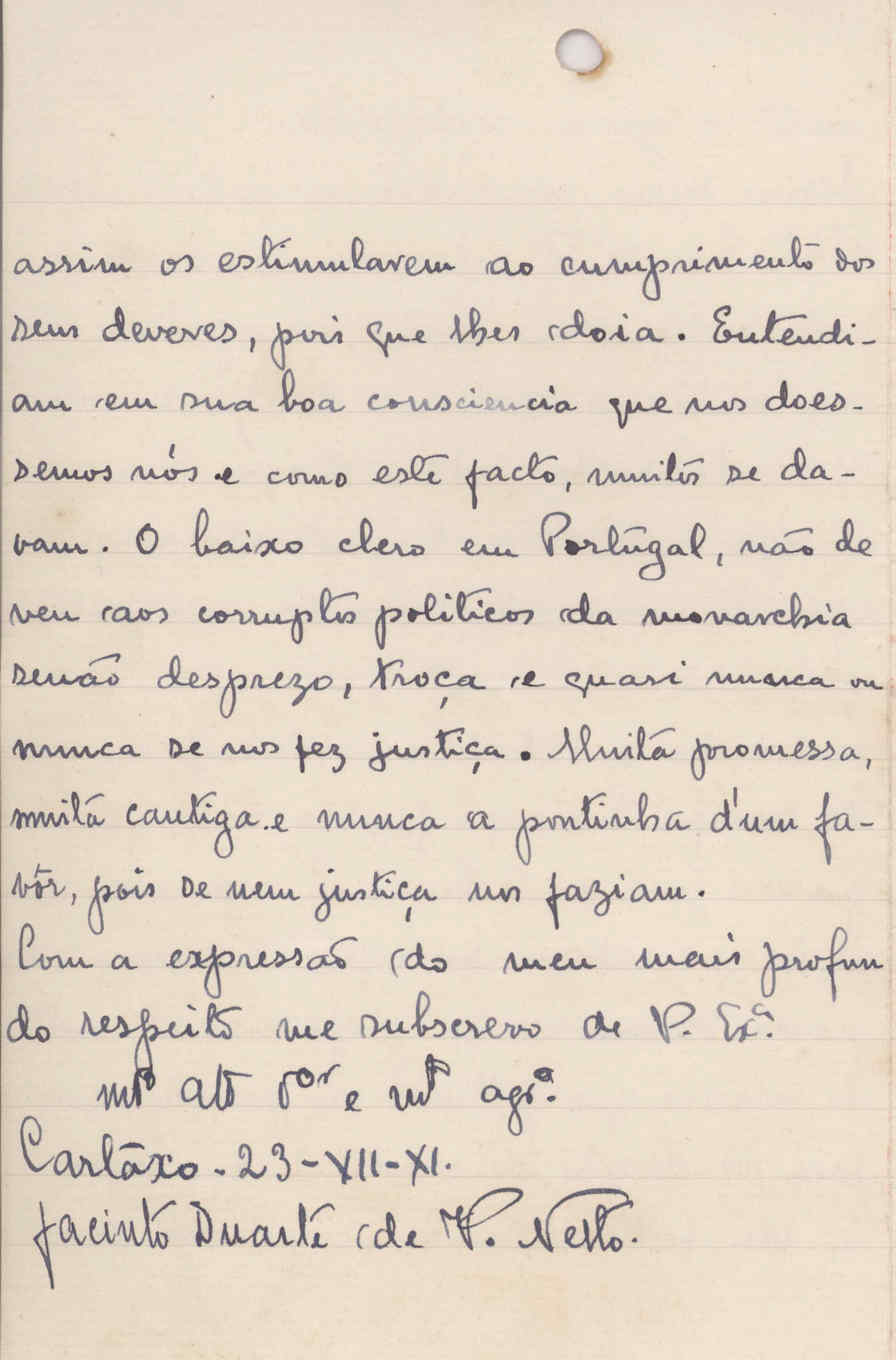 assim os estimularem ao cumprimento dos
seus deveres, pois que lhes doia. Entendi-
am em sua boa consciencia que nos does-
semos nós e como este facto, muitos se da-
vam. O baixo clero em Portugal, não de
veu aos corruptos politicos da monarchia
senão desprezo, troça e quasi nunca ou
nunca se nos fez justiça. Muita promessa,
muita cantiga e nunca a pontinha d'um fa-
vôr, pois se nem justiça nos faziam.
Com a expressão do meu mais profun
do respeito me subscrevo de V. Exª.
mtº attº vor e mtº agrº.
Cartaxo - 23-XII-XI.
Jacinto Duarte de V. Netto.